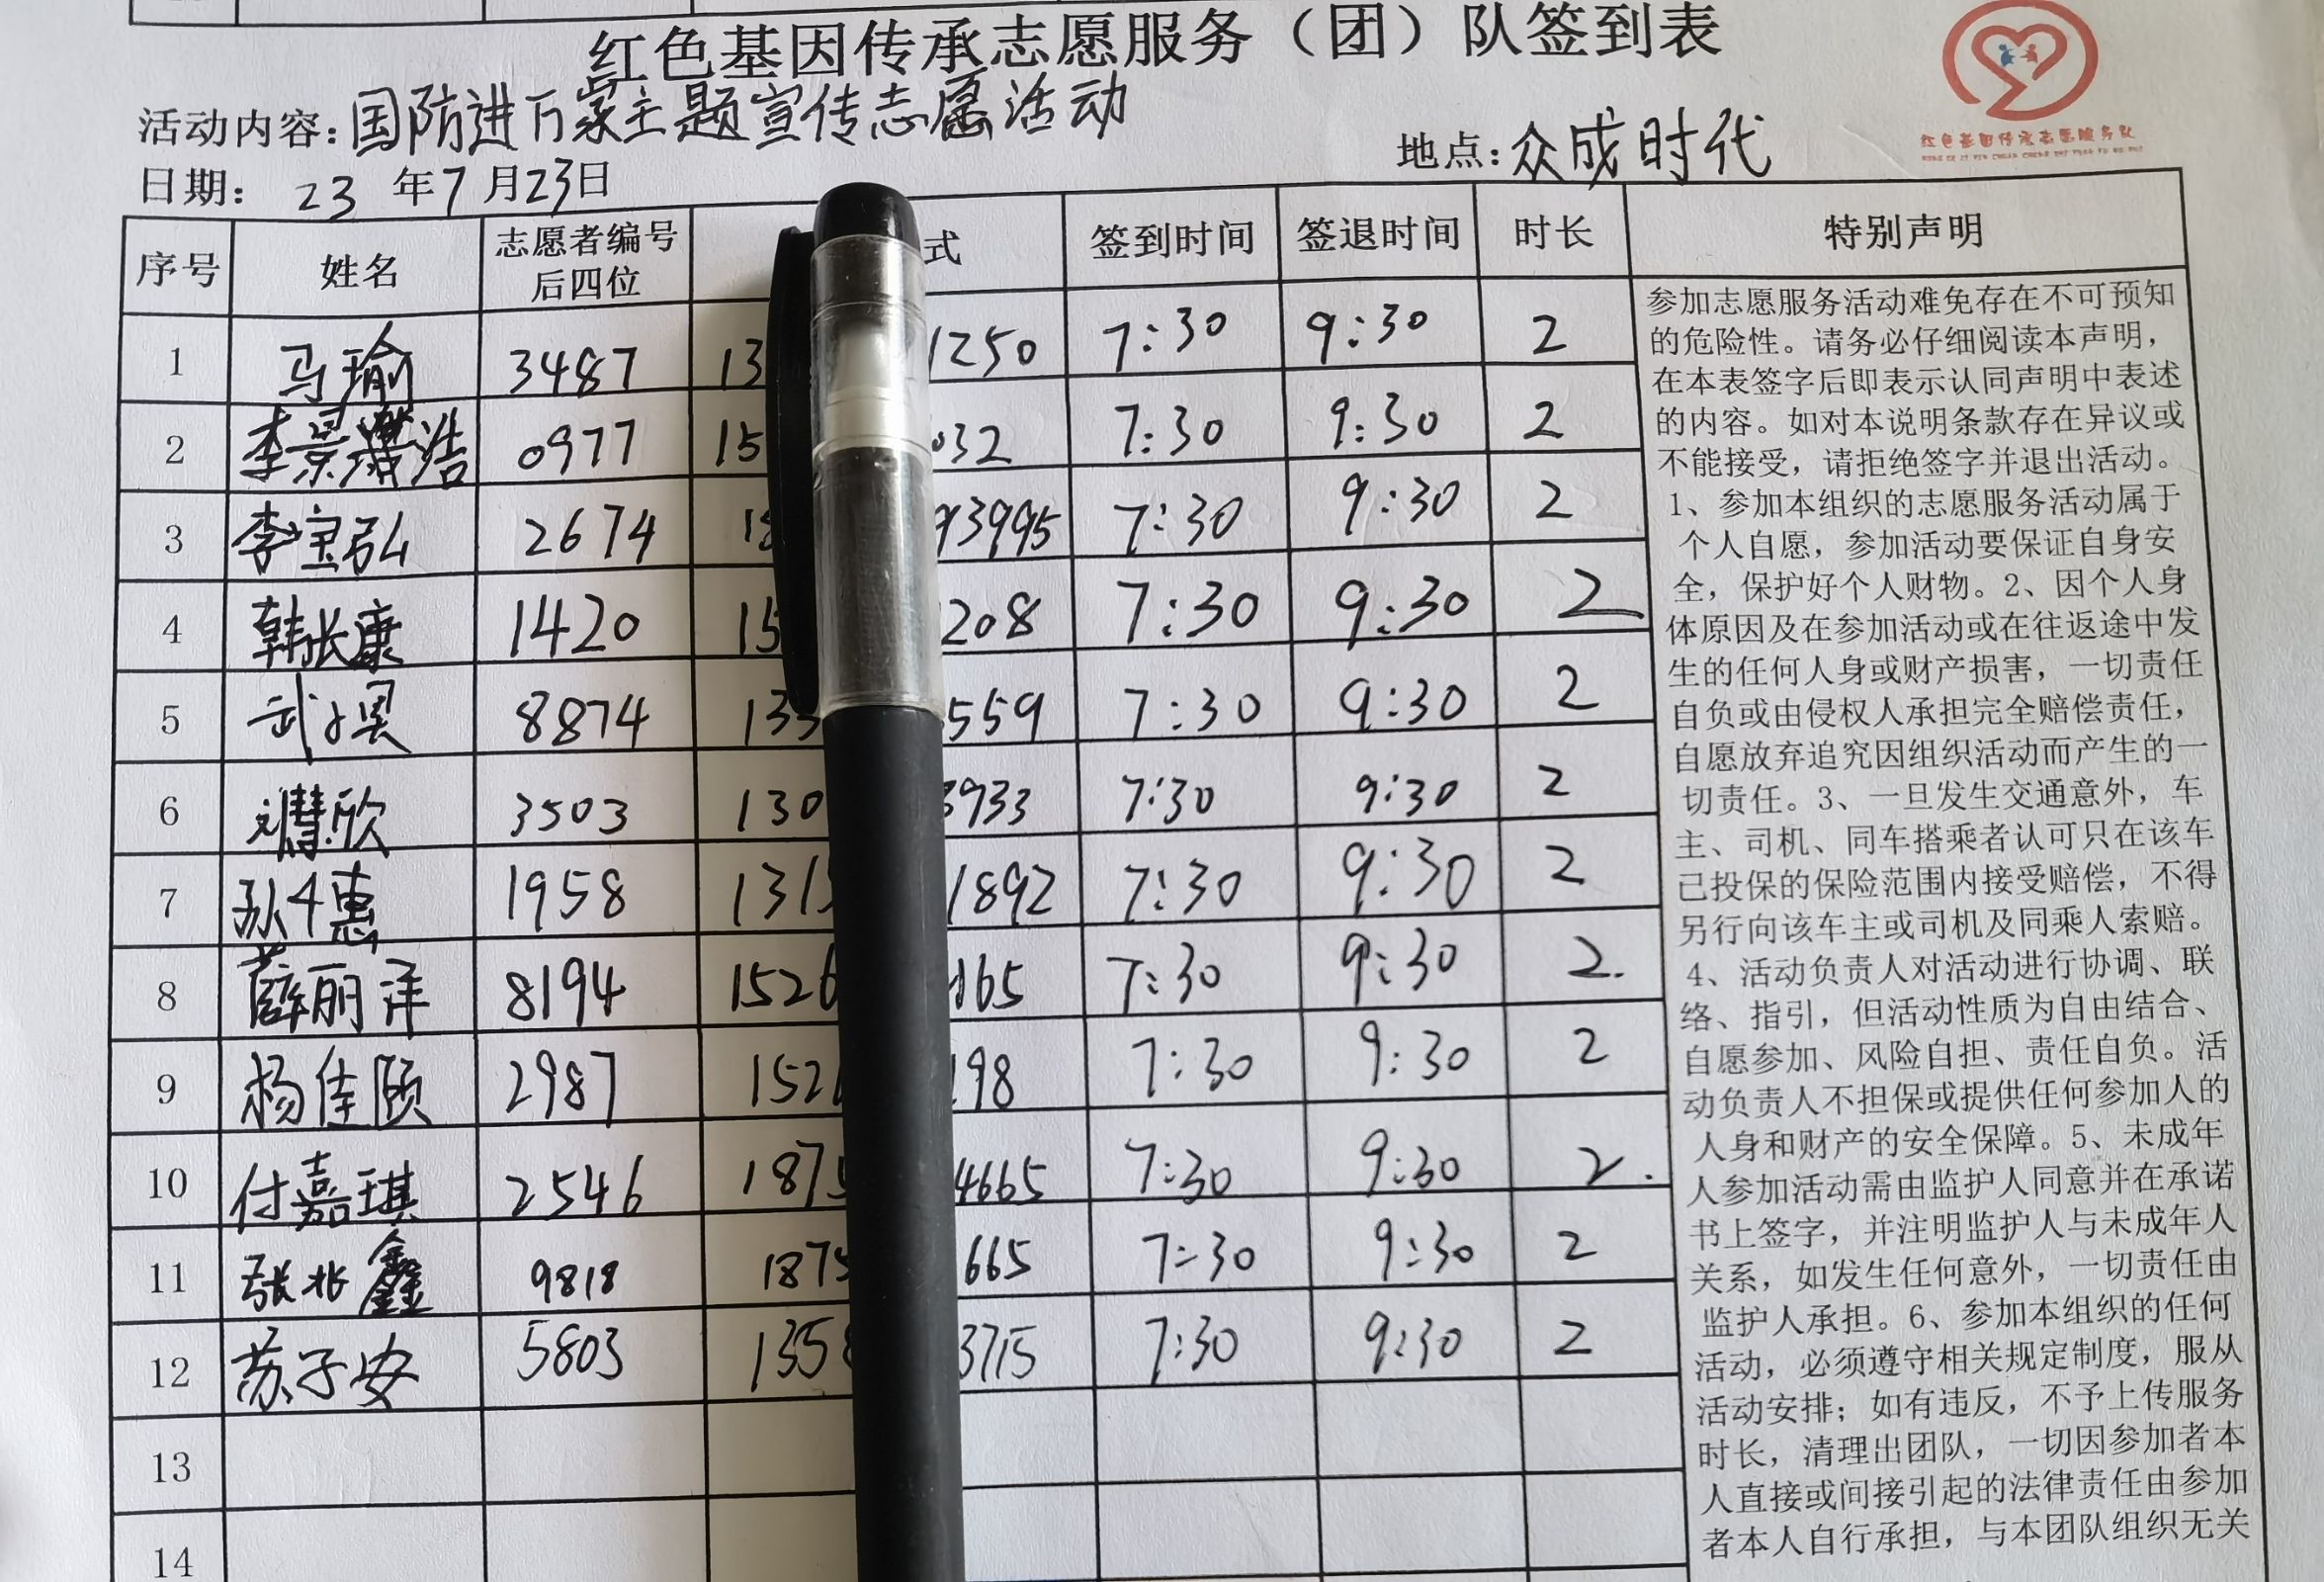 红色基因传承志愿服务（团）队签到表
活动内容：国防进万家主题宣传志愿活动
地点：众成时代
红色基因传承志愿服务队
日期： 23 年7月23日
序号 姓名 志愿者编号后四位 式 签到时间 签退时间 时长 特别声明
1 马瑜 3487 13 1250 7:30 9:30 2
2 李景浩 0977 15 032 7:30 9:30 2
3 李宝弘 2674 18 93995 7:30 9:30 2
4 韩张康 1420 15 208 7:30 9:30 2
5 武昊 8874 133 559 7:30 9:30 2
6 刘慧欣 3503 130 3933 7:30 9:30 2
7 孙惠 1958 1313 1892 7:30 9:30 2
8 薛丽洋 8194 1526 165 7:30 9:30 2.
9 杨佳颐 2987 152 198 7:30 9:30 2
10 付嘉琪 2546 1875 4665 7:30 9:30 2.
11 张兆鑫 9818 1875 665 7:30 9:30 2
12 苏子安 5803 1358 3715 7:30 9:30 2
13
14
参加志愿服务活动难免存在不可预知
的危险性。请务必仔细阅读本声明，
在本表签字后即表示认同声明中表述
的内容。如对本说明条款存在异议或
不能接受，请拒绝签字并退出活动。
1、参加本组织的志愿服务活动属于
个人自愿，参加活动要保证自身安
全，保护好个人财物。2、因个人身
体原因及在参加活动或在往返途中发
生的任何人身或财产损害，一切责任
自负或由侵权人承担完全赔偿责任，
自愿放弃追究因组织活动而产生的一
切责任。3、一旦发生交通意外，车
主、司机、同车搭乘者认可只在该车
己投保的保险范围内接受赔偿，不得
另行向该车主或司机及同乘人索赔。
4、活动负责人对活动进行协调、联
络、指引，但活动性质为自由结合、
自愿参加、风险自担、责任自负。活
动负责人不担保或提供任何参加人的
人身和财产的安全保障。5、未成年
人参加活动需由监护人同意并在承诺
书上签字，并注明监护人与未成年人
关系，如发生任何意外，一切责任由
监护人承担。6、参加本组织的任何
活动，必须遵守相关规定制度，服从
活动安排；如有违反，不予上传服务
时长，清理出团队，一切因参加者本
人直接或间接引起的法律责任由参加
者本人自行承担，与本团队组织无关